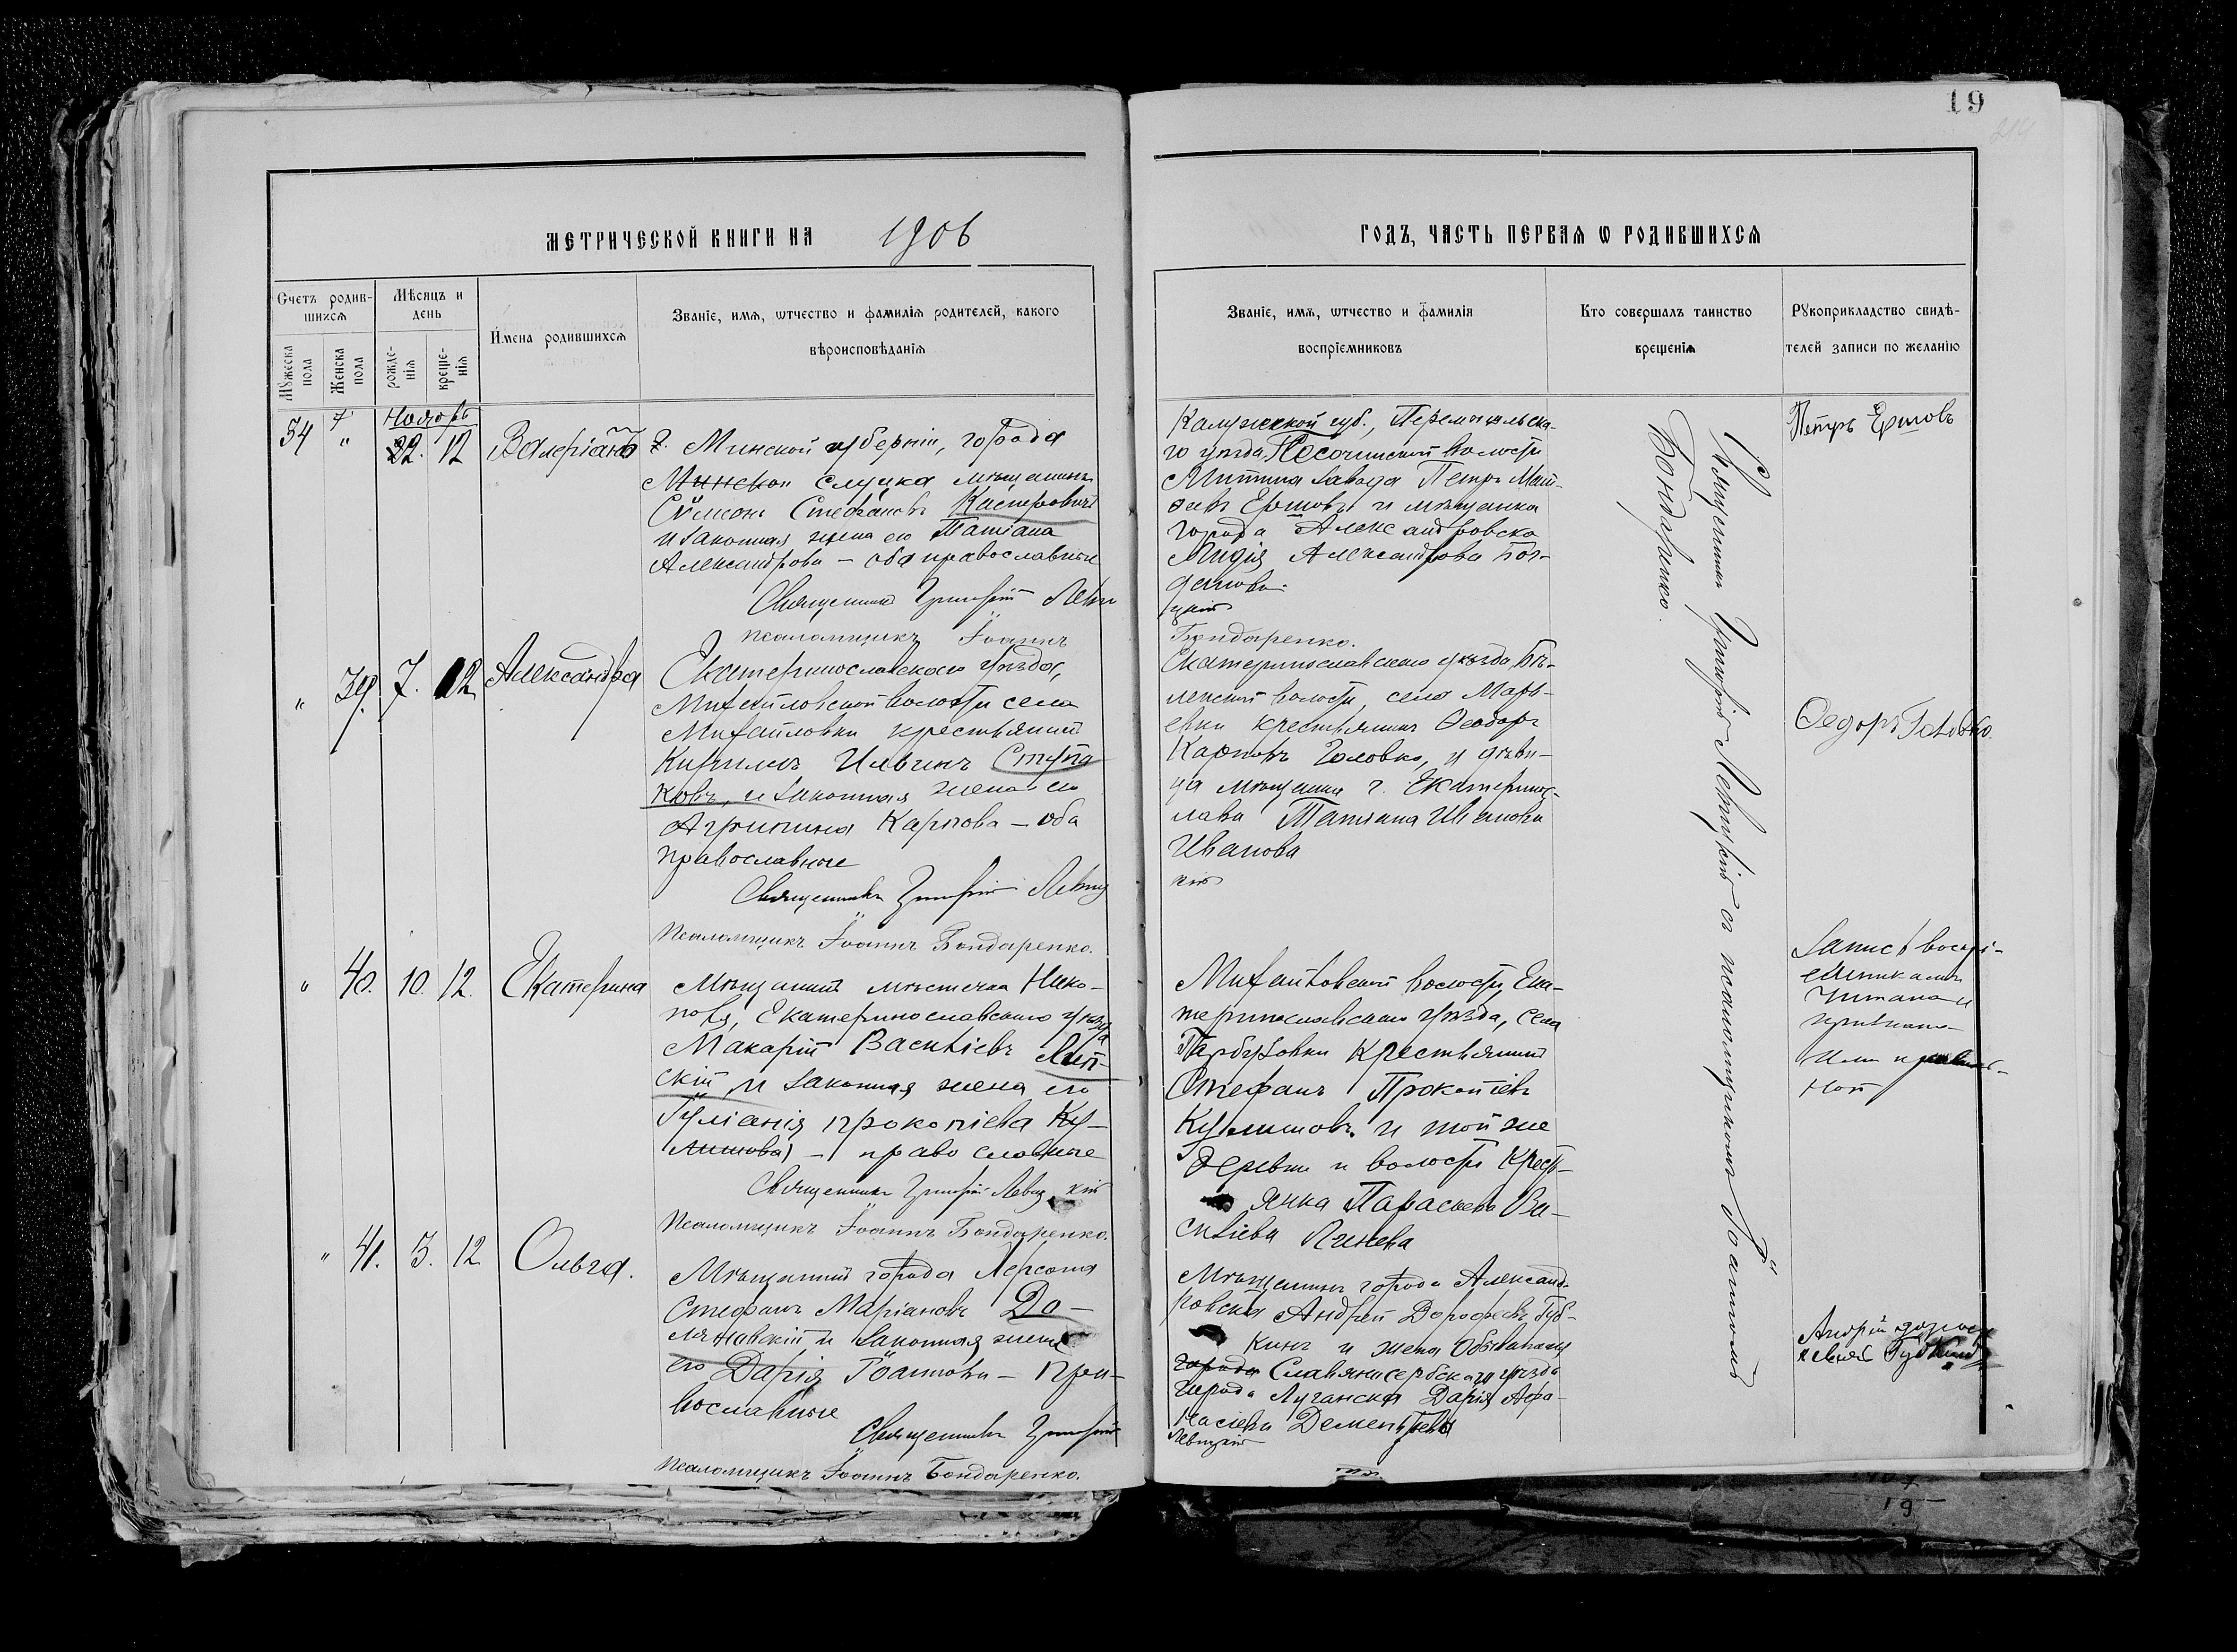 19
МЕТРИЧЕСКОЙ КНИГИ НА 1906
ГОДЪ, ЧАСТЬ ПЕРВАЯ Ѡ РОДИВШИХСЯ
Счетъ родив-
шихся
Мѣсяцъ и
день
Мꙋжеска
пола
Женска
пола
рожде-
нія
креще-
нія
Имена родившихся
Званіе, имя, ѡтчество и фамилія родителей, какого
вѣроисповѣданія
Званіе, имя, ѡтчество и фамилія
воспріемниковъ
Кто совершалъ таинство
крещенія
Рꙋкоприкладство свидѣ-
телей записи по желанію
Ноябрь
54 " 22. 12 Валеріанъ
Минской губерніи, города
Минской Слуцка мѣщанинъ
Симеонъ Стефановъ Касперовичъ
и законная жена его Татіана
Александрова – оба православные
Священникъ Григорій Левиц
псаломщикъ Іоаннъ
Калужской губ., Перемышльска-
го уѣзда, Песоченской волости
Митина завода Петръ Мат-
ѳеевъ Ершовъ и мѣщанка
города Александровска
Лидія Александрова Бог-
данова
цкій
Бондаренко.
Петръ Ершовъ
" 39. 7. 12 Александра
Екатеринославскаго уѣзда,
Михайловской волости села
Михайловки крестьянинъ
Кириллъ Ильинъ Ступа
ковъ, и законная жена его
Агрипина Карпова – оба
православные
Священникъ Григорій Левиц
псаломщикъ Іоаннъ Бондаренко.
Екатеринославскаго уѣзда, Бѣ-
ленской волости, села Марь-
евки крестьянинъ Ѳеодоръ
Карповъ Головко, и дѣви-
ца мѣщанка г. Екатеринос-
лава Татіана Иванова
Иванова
кій
Ѳедоръ Головко.
" 40. 10. 12. Екатерина
Мѣщанинъ мѣстечка Нико-
поля, Екатеринославскаго уѣзда
Макарій Васильевъ Лип-
скій, и законная жена его
Іуліанія Прокопіева Ку-
лишова) – православные
Священникъ Григорій Левиц кій
псаломщикъ Іоаннъ Бондаренко.
Михайловской волости, Ека-
теринославскаго уѣзда, села
Крестьянинъ
Стефанъ Прокопіевъ
Кулишовъ и той же
деревни и волости Крест-
янка Параскева Ва-
сильева Линева
Запись воспрі-
емникамъ
читана и
признана
ими правиль-
ной
" 41. 5. 12 Ольга.
Мѣщанинъ города Херсона
Стефанъ Маріановъ До-
ляновскій и законная жена
его Дарія Іоаннова – Пра-
вославные
Священникъ Григорій
псаломщикъ Іоаннъ Бондаренко.
Мѣщанинъ города Александ-
ровска Андрей Дороѳеевъ Губ-
кинъ и жена обывателя
города Славяносербскаго уѣзда
города Луганска Дарія Аѳа-
насіева Дементьева
Левицкій
Андрій дороѳ
Губкинъ
Священникъ Григорій Левицкій съ псаломщикомъ Іоанномъ
Бондаренко.
19